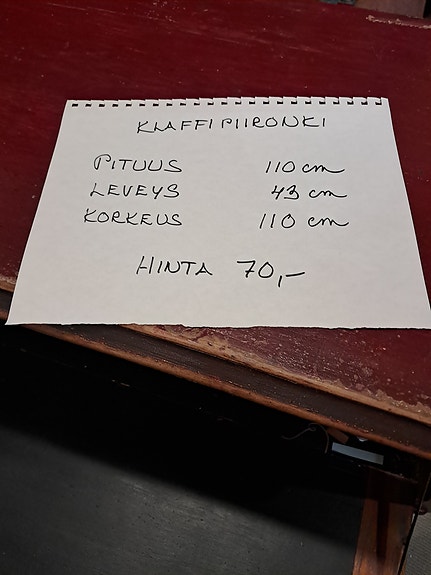 KLAFFIPIIRONKI
PITUUS 110 cm
LEVEYS 43 cm
KORKEUS 110 cm
HINTA 70,-